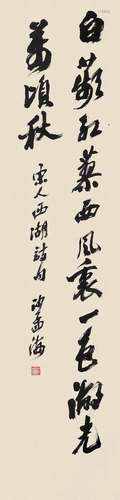 白蘋红蓼西风裏一色湖光
万頃秋
宋人西湖詩句 沙孟海